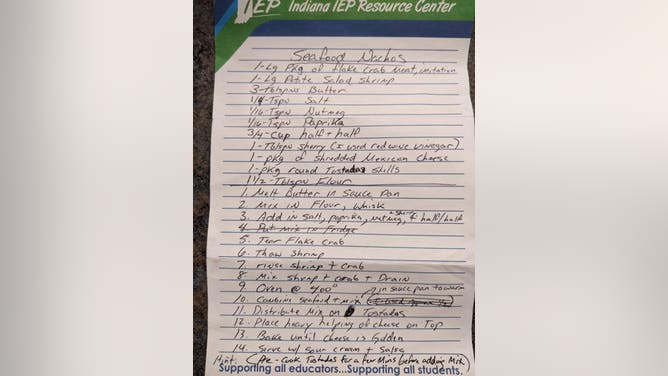 IEP Indiana IEP Resource Center
Seafood Nachos
1-Lg Pkg of flake Crab meat, imitation
1-Lg Petite Salad Shrimp
3-Tblspns Butter
1/4-Tspn Salt
1/16-Tspn Nutmeg
1/16-Tspn Paprika
3/4-Cup half + half
1-Tblspn sherry (I used redwine vinegar)
1-pkg of shredded Mexican Cheese
1-pkg round Tostadas shells
1 1/2-Tblspn Flour
1. Melt Butter in Sauce Pan
2. Mix in Flour, whisk
3. Add in salt, paprika, nutmeg, + sherry + half/half
4. Put Mix in Fridge
5. Tear Flake Crab
6. Thaw Shrimp
7. rinse shrimp + Crab
8. Mix shrmp + crab + Drain
9. Oven @ 400°
10. Combine seafood + mix (in sauce pan to warm
11. Distribute Mix on Tostadas
12. Place heavy helping of cheese on Top
13. Bake until cheese is Golden
14. Serve w/ sour cream + Salsa
Hint: (Pre-Cook Tostadas for a few Mins before adding Mix)
Supporting all educators...Supporting all students.